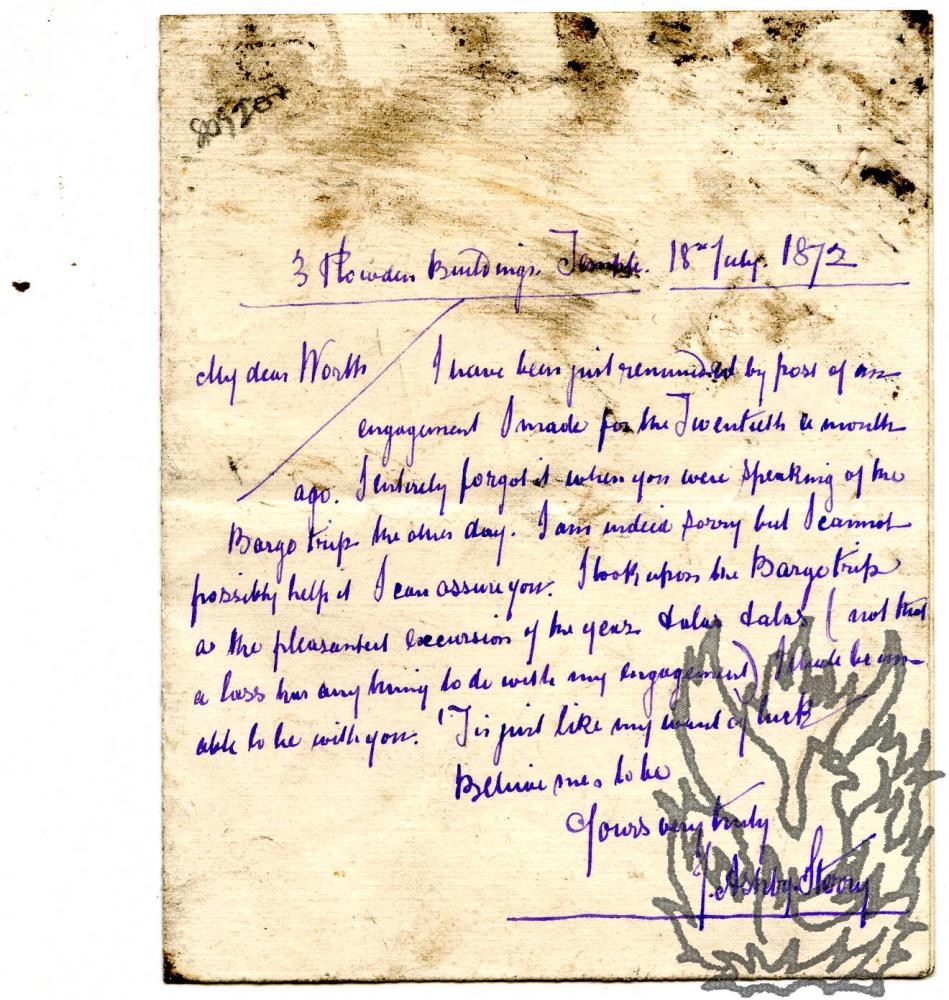 3 Plowden Buildings. Temple. 18th July. 1872
My dear Worth I have been just reminded by post of an
engagement I made for the Twentieth a month
ago. I entirely forgot it when you were speaking of the
Barge trip the other day. I am indeed sorry but I cannot
possibly help it I can assure you. I look upon the Barge trip
as the pleasantest excursion of the year & alas & alas ( not that
a lass has any thing to do with my engagement) I shall be un-
able to be with you. 'Tis just like my want of luck
Believe me to be
Yours very truly
J. Ashby-Sterry